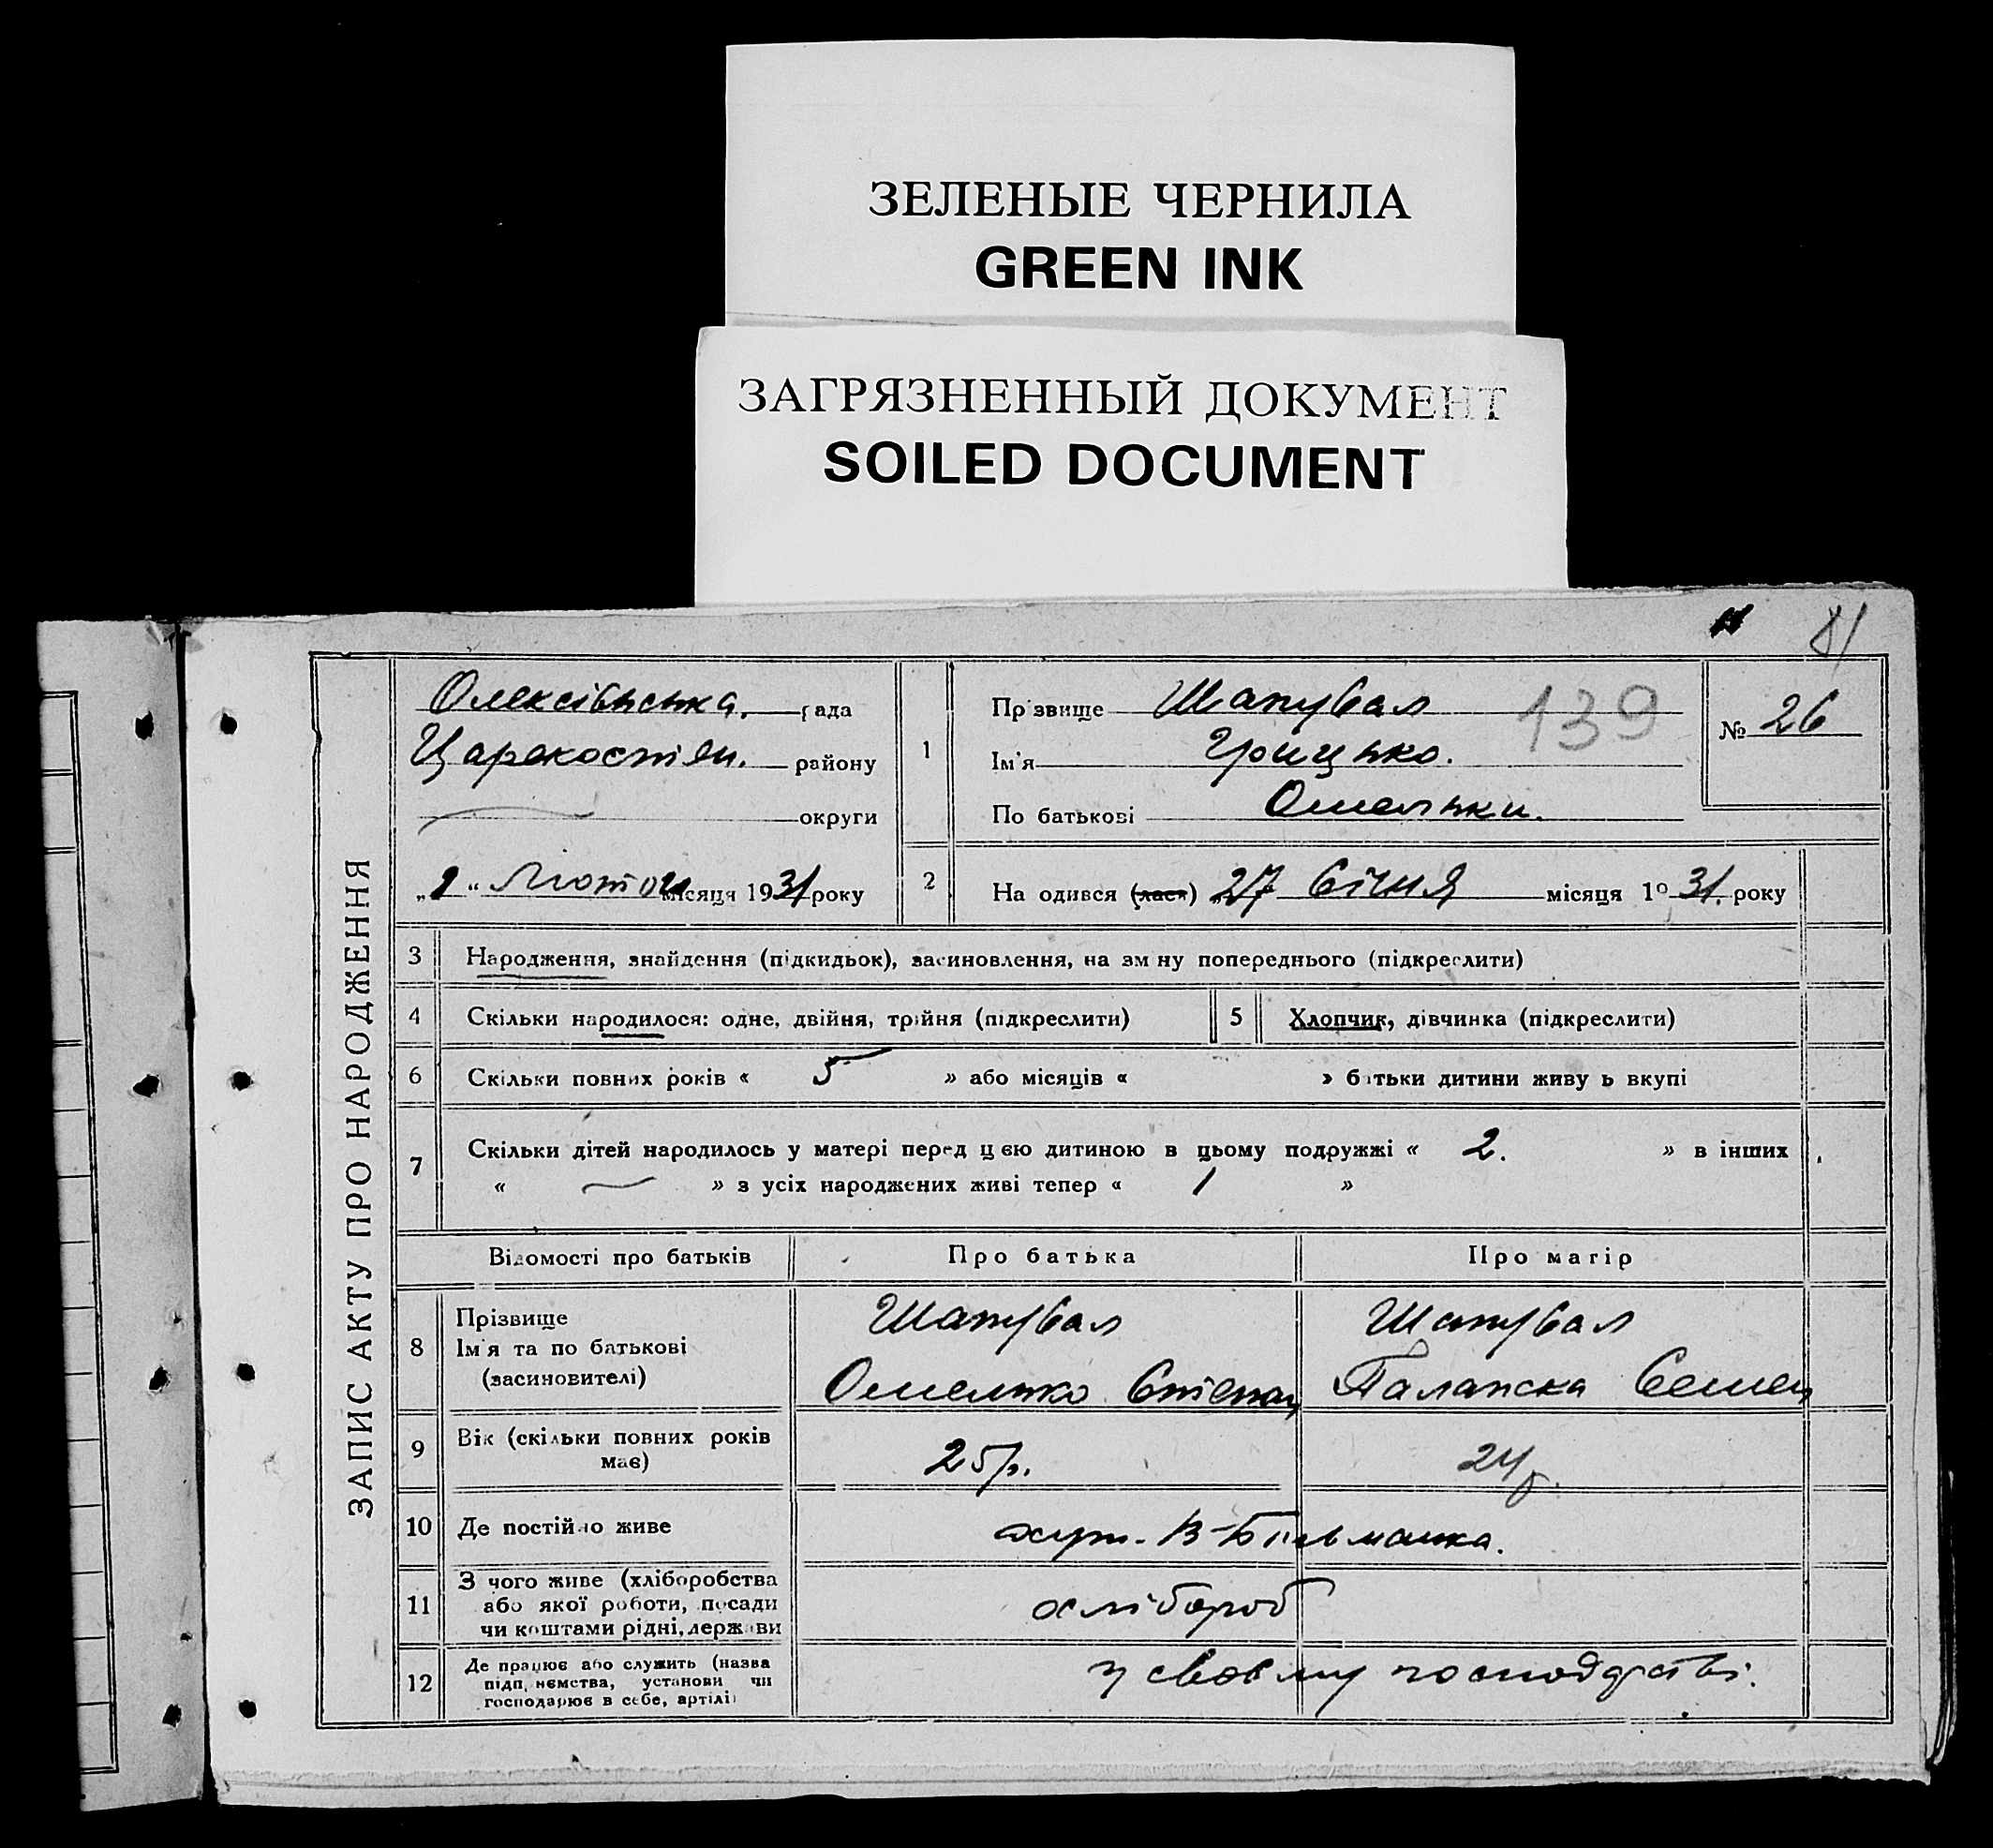 ЗЕЛЕНЫЕ ЧЕРНИЛА
GREEN INK
ЗАГРЯЗНЕННЫЙ ДОКУМЕНТ
SOILED DOCUMENT
81
ЗАПИС АКТУ ПРО НАРОДЖЕННЯ
Олексіївська. рада
Царекостян. району
округи
„1“ Лютого місяця 1931 року
1
Прізвище Шаповал
139
Ім'я Грицько.
По батькові Омельки.
№ 26
2
На одився (лася) 27 Січня місяця 19 31. року
3 Народження, знайдення (підкидьок), засиновлення, на зміну попереднього (підкреслити)
4 Скільки народилося: одне, двійня, трійня (підкреслити)
5 Хлопчик, дівчинка (підкреслити)
6 Скільки повних років « 5 » або місяців « » батьки дитини живу ь вкупі
7 Скільки дітей народилось у матері перед цією дитиною в цьому подружжі « 2. » в інших
« — » з усіх народжених живі тепер « 1 »
Відомості про батьків
Про батька
Про матір
8 Прізвище
Ім'я та по батькові
(засиновителі)
Шаповал
Омелько Степан
Шаповал
Палажка Семен
9 Вік (скільки повних років
має)
25 р.
24 р.
10 Де постійно живе
хут. В-Більманка.
11 З чого живе (хліборобства
або якої роботи, посади
чи коштами рідні, держави
хлібороб
12 Де працює або служить (назва
підприємства, установи чи
господарює в себе, артілі)
у своєму господарстві.